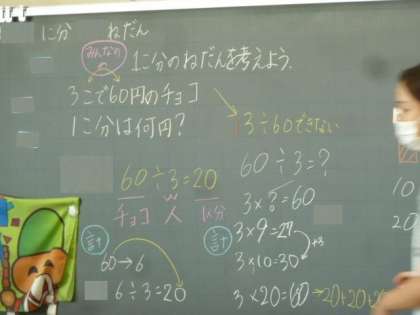 1こ分 ねだん
みんなの
1こ分のねだんを考えよう。
3こで60円のチョコ
1こ分は何円？
3÷60できない
60÷3=20
チョコ 人 1人分
計
60→6
6÷3=20
60÷3=?
3×?=60
計
3×9=27
+3
3×10=30
3×20=60→20+20+20
10
20